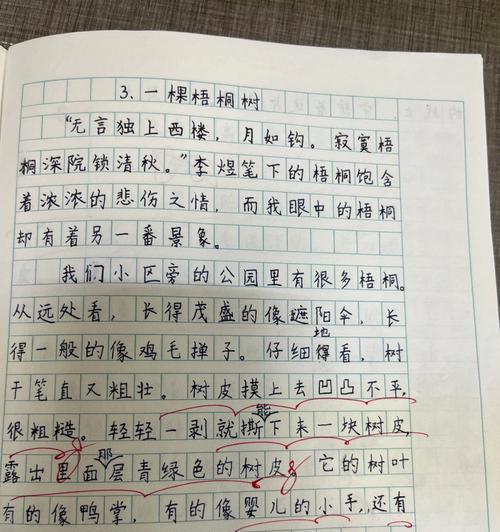 3.一棵梧桐树
“无言独上西楼，月如钩。寂寞梧
桐深院锁清秋。”李煜笔下的梧桐饱含
着浓浓的悲伤之情，而我眼中的梧桐
却有着另一番景象。
我们小区旁的公园里有很多梧桐。
从远处看，长得茂盛的像遮阳伞，长
得一般的像鸡毛掸子。仔细地看，树
干笔直又粗壮。树皮摸上去凹凸不平，
很粗糙。轻轻一剥就能撕下来一块树皮，
露出里面那层青绿色的树皮。它的树叶
有的像鸭掌，有的像婴儿的小手，还有